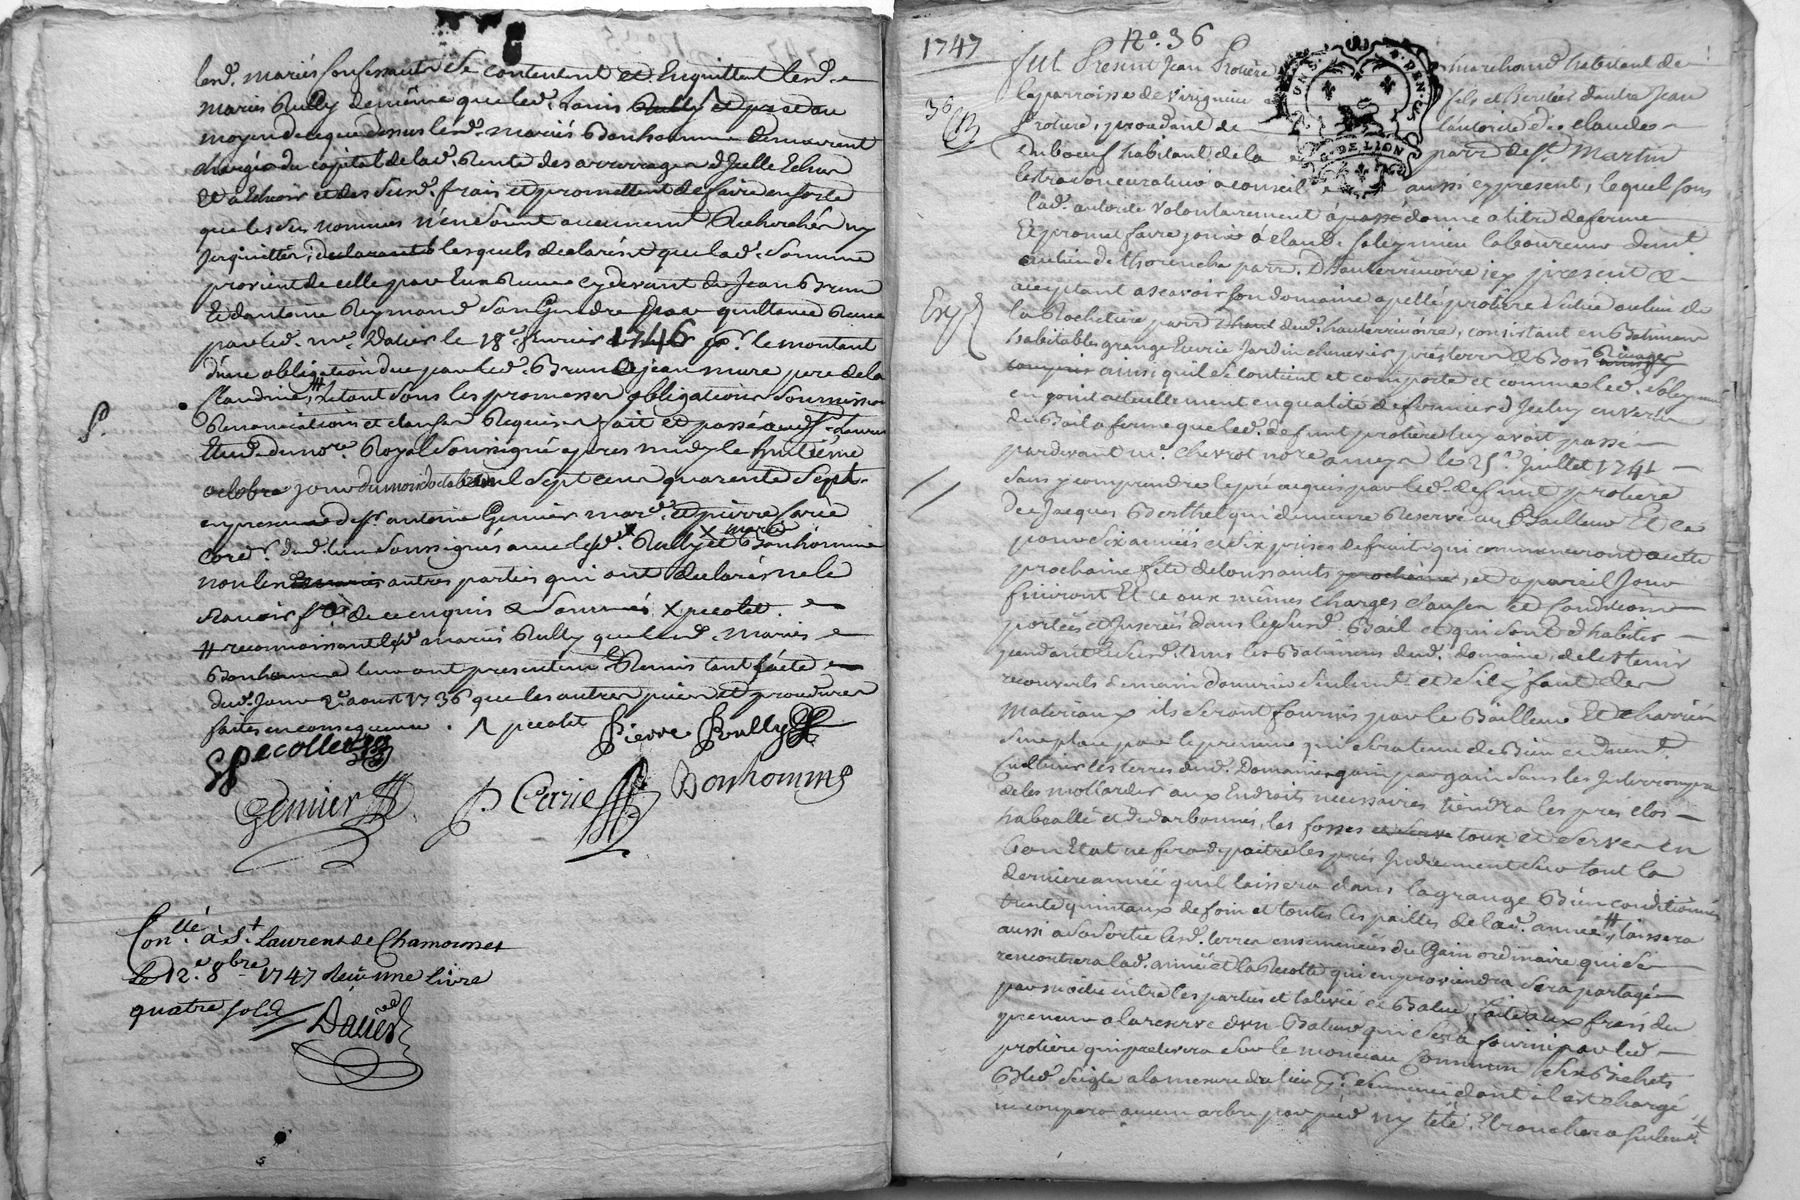 lesd. mariés confessants se contentent et Enquittent lesd.
mariés Rully de même que led. Louis Rully et pres au
moyen de ce que dessus lesd. mariés Bonhomme demeurent
chargés du capital de lad. Rente des arrerrages d'Icelle Echus
Et a Echeoir et des susd. frais et promettent de faire en sorte
que les sus nommés n'en soient aucunement Recherchés ny
Inquiettés, declarants lesquels declarent que lad. somme
provient de celle par Eux Reçue cy devant de Jean Brun
Et d'antoine Reymond son Gendre par quittance Reçue
par led. me. Dalier le 18e. fevrier 1746 pr. le montant
d'une obligation due par led. Brun a jean mure pere de la
Claudine, # Etant sous les promesses obligations soumissions
Renonciations et clauses Requises fait et passé aud. st. Laurent
Etude du nore. Royal soussigné apres midy le huitième
octobre jour du mois d'octobre mil sept cens quarente sept
en presence de sr. antoine Genier marcd. et pierre Cerie
cord. dud. lieu soussignés avec lesd. Rully et Bonhomme
non les autres parties qui ont declarés ne le
scavoir fe. de ce enquis & sommés X pecolet.
# reconnoissant lesd. mariés Rully que lesd. mariés
Bonhomme leur ont presentement Remis tant l'acte
dud. jour 2e. aoust 1736 que les autres pieces et procedures
faites en consequence. pecolet Pierre Rully
Pecollet
Genier P. Cerie Bonhomme
Conllé. à St. Laurent de Chamousset
Le 12e. 8bre 1747 Reçu une livre
quatre sols Dalier
1747 No. 36
fut Present Jean Protiere marchand habitant de
la parroisse de Virignieu fils et heritier de autre Jean
Protiere, procedant de l'autorité de sr. claude
Duboeuf habitant de la parr. de st. Martin
lestra son curateur a conseil aussi cy present, lequel sous
lad. autorité volontairement a passé donne a titre de ferme
Et promet faire jouir à claude saleymieu laboureur du
au lieu de thorenche parr. d'hauterrivoire icy present &
acceptant a scavoir son domaine apellé protiere situé au lieu de
la Rochetiere parr. dud. hauterrivoire, consistant en Batiments
habitables grange Ecurie Jardin chenevier prés terres & Bois
ainsi qu'il se contient et comporte et comme led. saleymieu
en jouit actuellement en qualité de fermier d'Iceluy en vertu
du Bail a ferme que led. defunt protiere luy avoit passé
pardevant me. chevrot nore a meys le 25e. Juillet 1741
sans y comprendre le pré acquis par led. defunt protiere
de Jacques Berthet qui demeure Reservé au Bailleur Et ce
pour six années et six prises de fruits qui commenceront a cette
prochaine fete de toussaints prochaine, et a pareil Jour
finiront Et ce aux mêmes charges clauses et conditions
portées et Inserées dans le susd. Bail et qui sont d'habiter
pendant le susd. tems les Batiments dud. domaine, de les tenir
recouverts de main d'ouvrier seulemt. et s'il y faut des
materiaux ils seront fournis par le Bailleur Et charriés
sur place par le preneur qui sera tenu de Bien et duemt.
cultiver les terres dud. Domaine gain par gain sans les Interrompre
de les mollarder aux Endroits necessaires tiendra les prés clos
habrallé et de darbonnés, les fossés et serves en
bon Etat ne fera depaitre les prés Induement sur tout la
derniere année qu'il laissera dans la grange Bien conditionnés
trente quintaux de foin et toutes les pailles de lad. année, # laissera
aussi a sa sortie lesd. terres ensemencées du Gain ordinaire qui se
rencontrera lad. année et la Recolte qui en proviendra sera partagée
par moitié entre les parties et la levée et Battue faite aux fraix du
preneur a la reserve d'un Batteur qui sera fourni par led.
protiere qui prelevera sur le monceau commun six Bichets
Bled seigle a la mesure du lieu pr. semence dont il est chargé
ne coupera aucun arbre par pied ny tête. Ebranchera seulemt.
36
Exp.